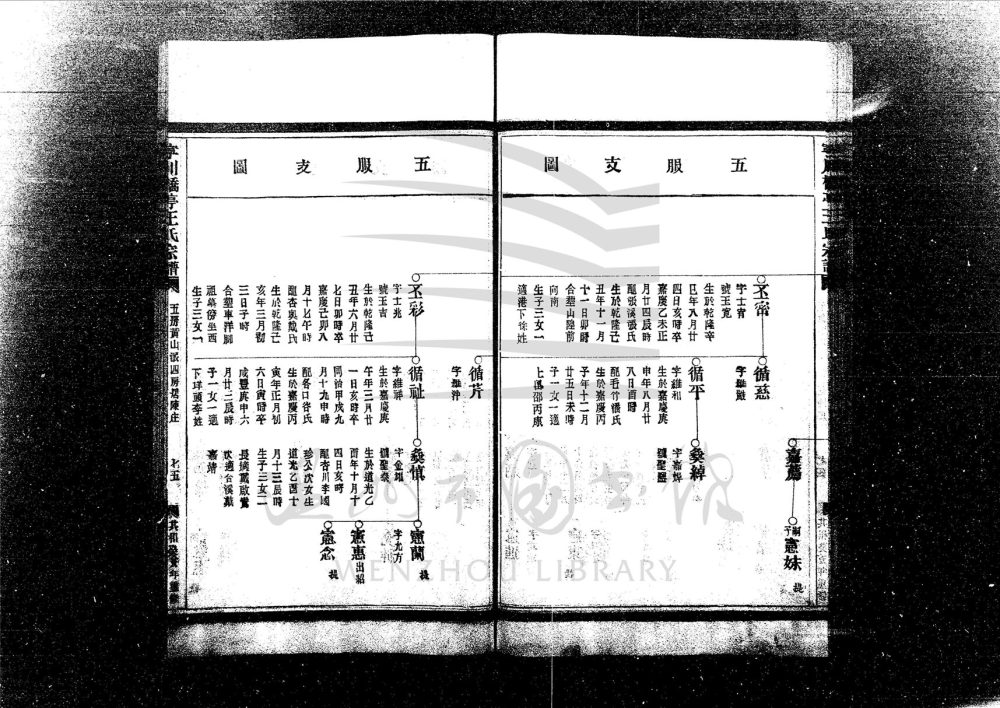 五服支圖
丕密
字士賓
號玉寬
生於乾隆辛
巳年八月廿
四日亥時卒
嘉慶乙未正
月廿四辰時
配張溪張氏
生於乾隆己
丑年十一月
十一日卯時
合塟山陸前
向南
生子三女一
適港下徐姓
循慈
循平
字維和
生於嘉慶庚
申年八月廿
八日酉時
配看竹張氏
生於嘉慶丙
子年十二月
廿五日未時
子一女一適
上邵丙康
燊綽
字嵩焯
號聖
憲妹
五服支圖
丕彩
字士兆
號玉吉
生於乾隆己
丑年六月廿
七日卯時卒
嘉慶己卯八
月十七午時
配杏奧戴氏
生於乾隆己
亥年三月初
三日子時
合塟車洋
祖墓傍坐西
生子三女一
循芹
循祉
字維祥
生於嘉慶庚
午年三月廿
一日亥時卒
同治甲戌九
月十九申時
配各口徐氏
生於嘉慶丙
寅年正月初
六日寅時卒
咸豐庚申六
月廿三辰時
子一女一適
下垟頭李姓
燊慎
字金
號聖泰
生於道光乙
酉年十月十
四日亥時
配杏川李國
珍公次女生
道光乙酉十
月十三辰時
生子三女二
長適戴啟鸞
次適合溪戴
嘉靖
憲蘭
字允方
憲惠 出紹
憲念
橋亭王氏宗譜
五房黃山派四房碧陳庄
七五
WENZHOU LIBRARY